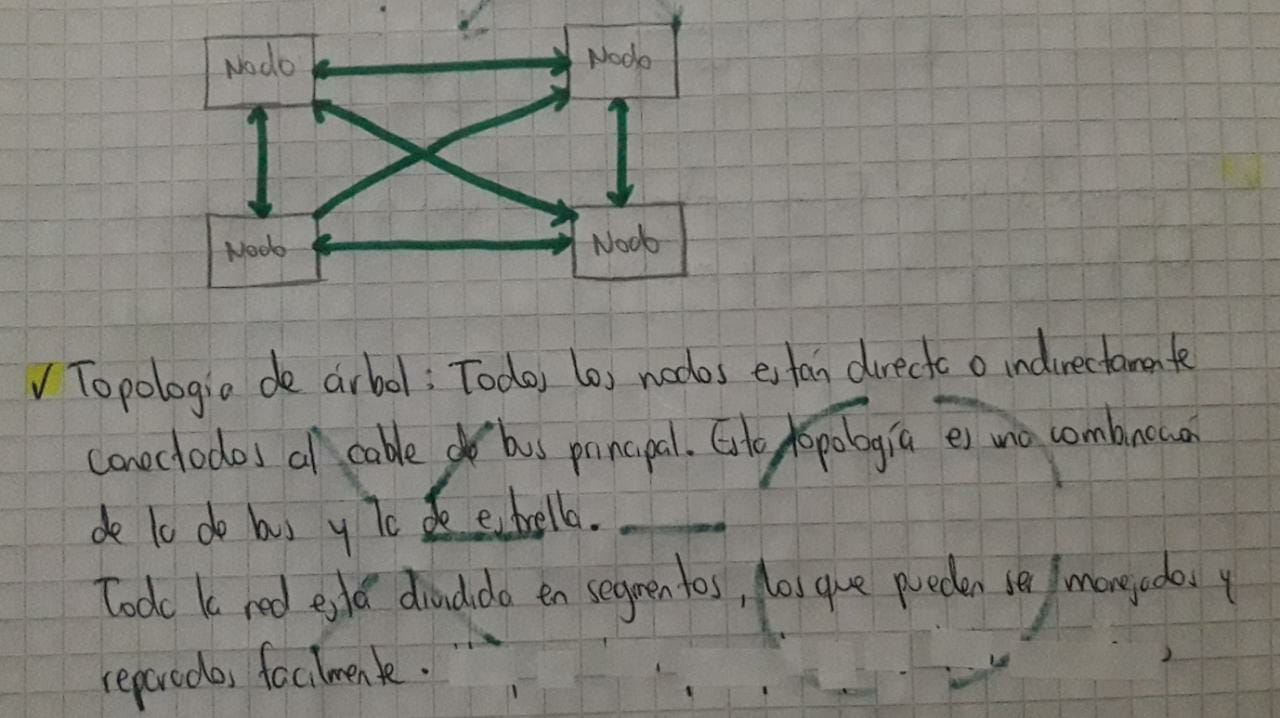 Nodo Nodo
Nodo Nodo
✓ Topología de árbol: Todos los nodos están directa o indirectamente
conectados al cable de bus principal. Esta topología es una combinación
de la de bus y la de estrella.
Toda la red está dividida en segmentos, los que pueden ser manejados y
reparados facilmente.